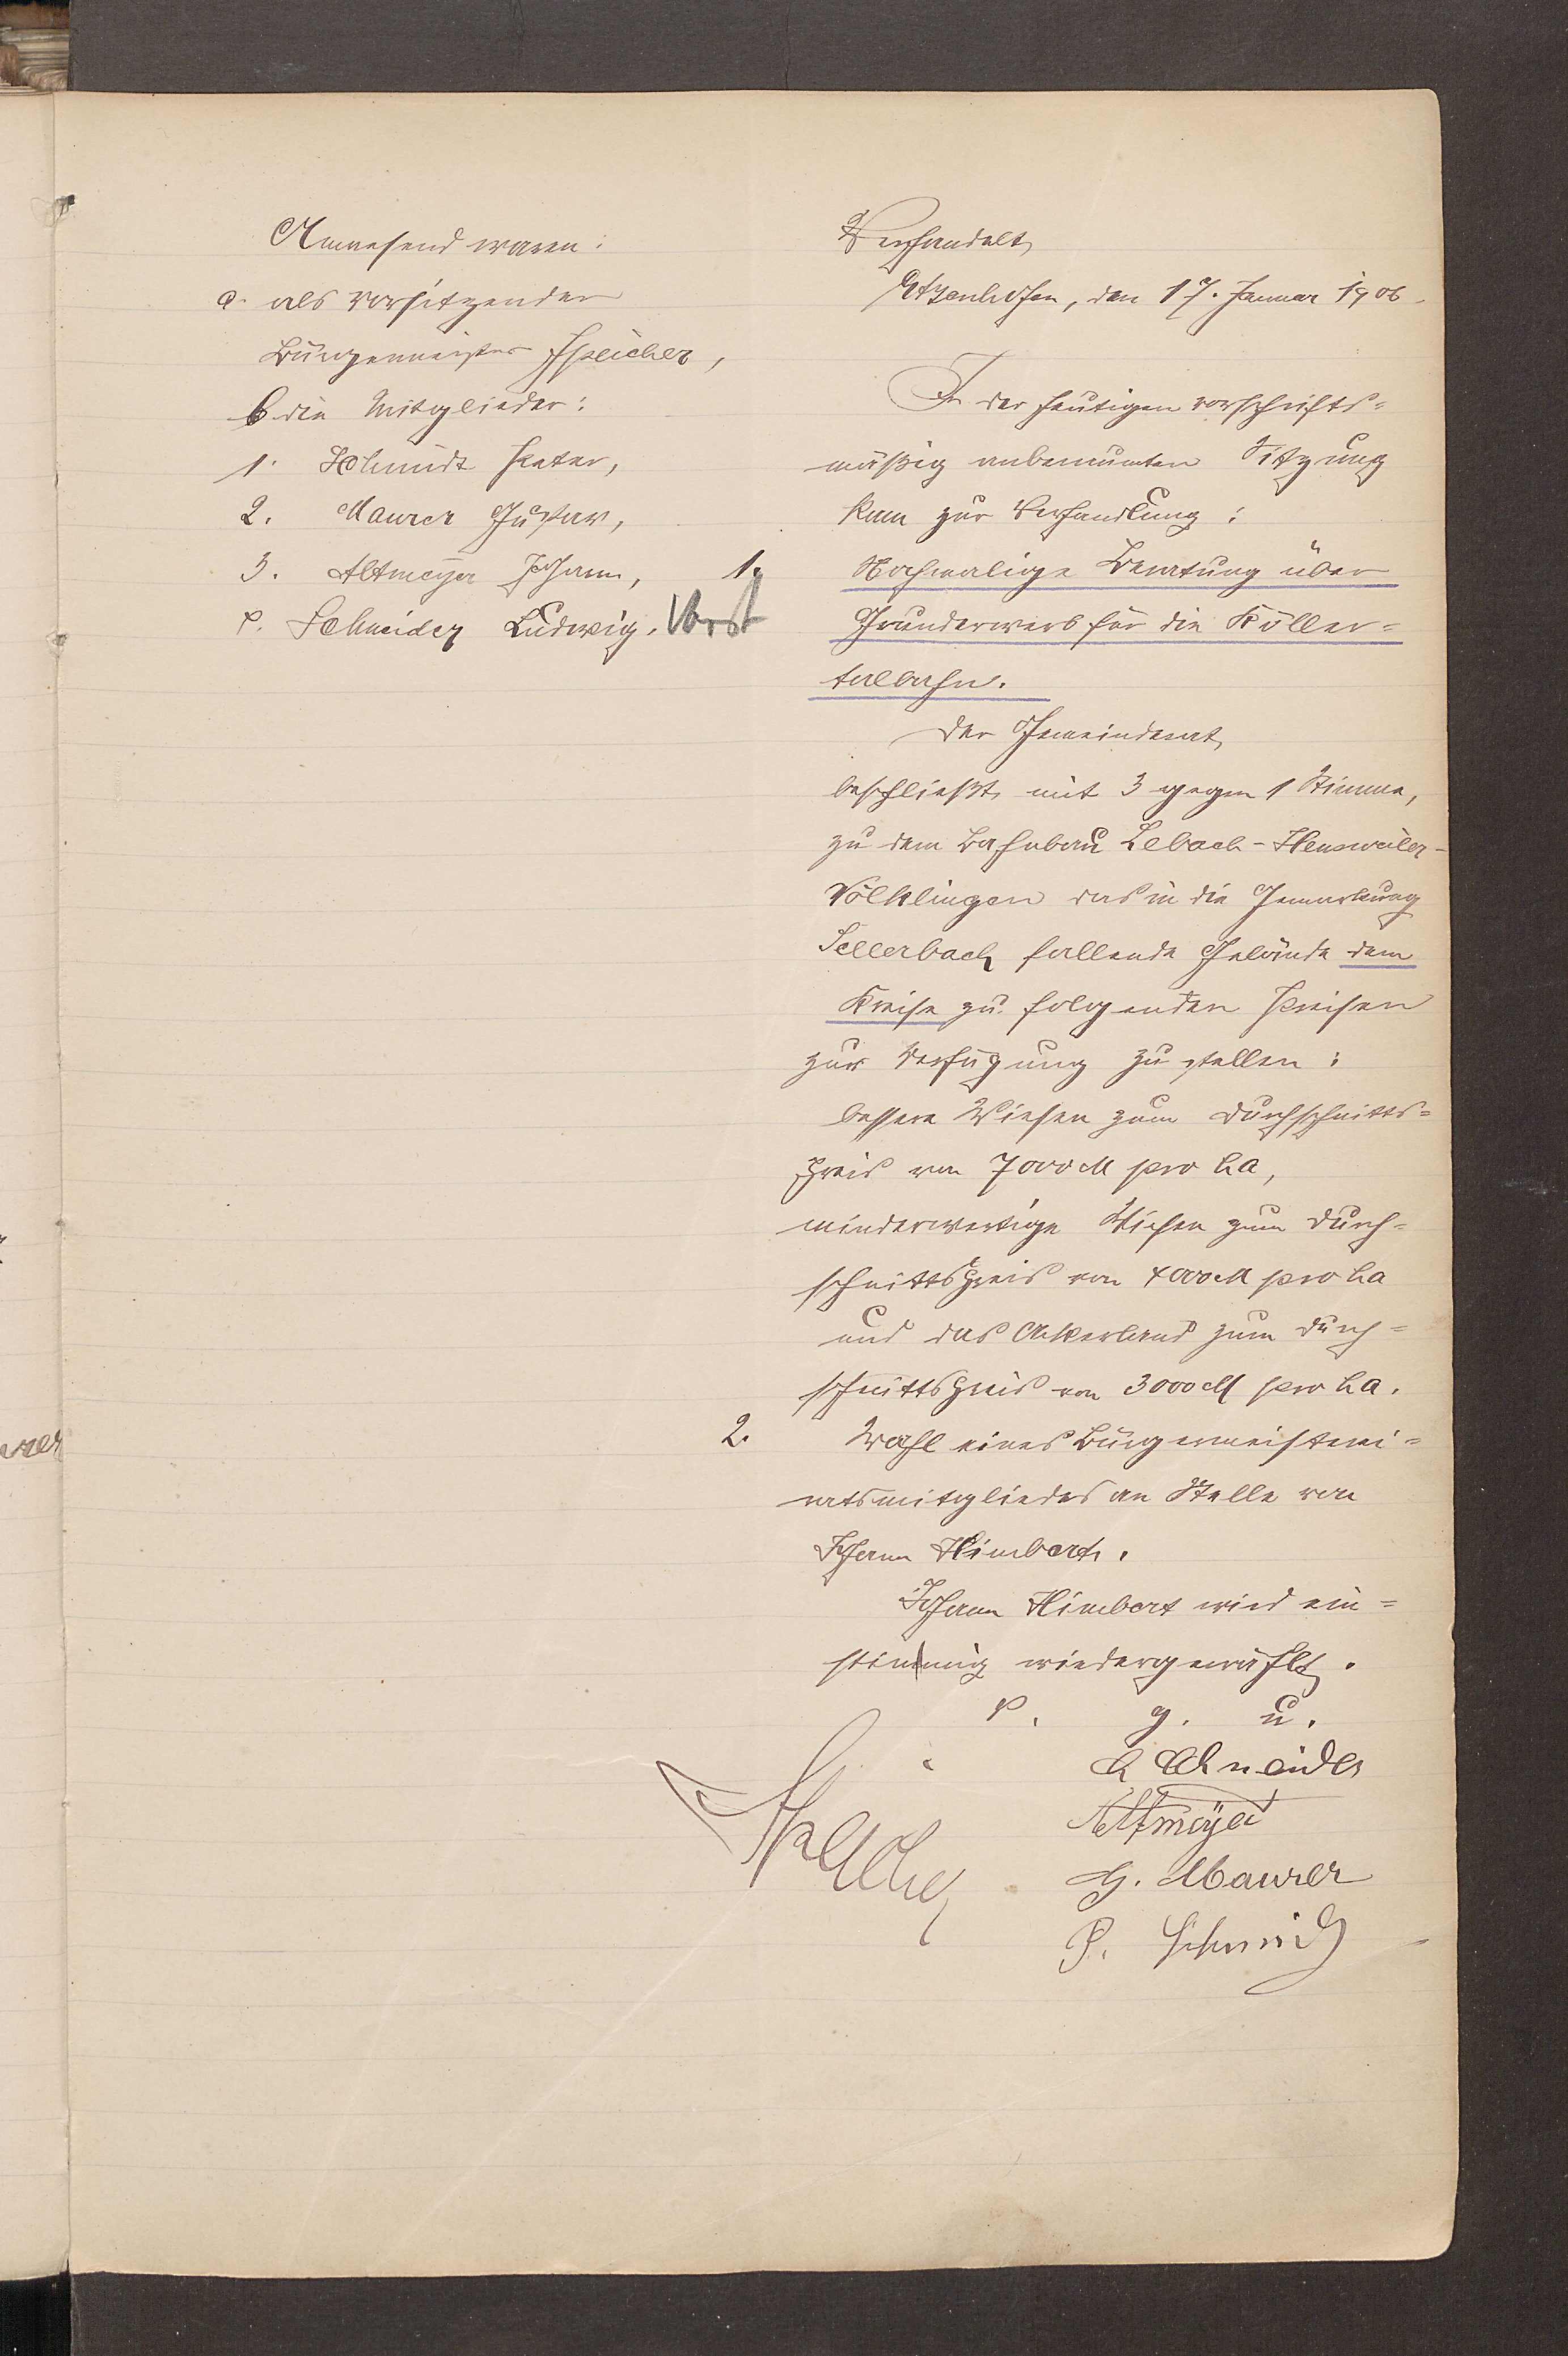 Anwesend waren:
a. als Vorsitzender
Bürgermeister Speicher,
b die Mitglieder:
1. Schmidt Peter,
2. Maurer Gustav,
3. Altmeyer Johann,
4. Schneider Ludwig. Vorst
Verhandelt,
Etzenhofen, den 17. Januar 1906.
In der heutigen vorschrifts=
mäßig anberaumten Sitzung
kam zur Verhandlung:
1. Nochmalige Beratung über
Grunderwerb für die Köller=
talbahn.
Der Gemeinderat
beschließt mit 3 gegen 1 Stimme,
zu dem Bahnbau Lebach-Heusweiler-
Völklingen das in die Gemarkung
Sellerbach fallende Gelände dem
Kreise zu folgenden Preisen
zur Verfügung zu stellen:
bessere Wiesen zum Durchschnitts=
preis von 7000 M pro ha,
minderwertige Wiesen zum Durch=
schnittspreis von 4000 M pro ha
und das Ackerland zum Durch=
schnittspreis von 3000 M pro ha.
2. Wahl eines Bürgermeisterei=
ratsmitgliedes an Stelle von
Johann Himbert.
Johann Himbert wird ein=
stimmig wiedergewählt.
v. g. u.
L Schneider
Altmeyer
Speicher
G. Maurer
P. Schmidt